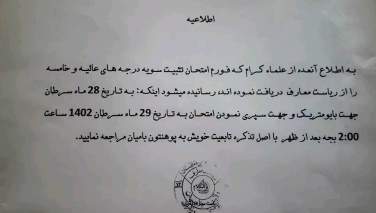 اطلاعیه
به اطلاع آنعده از علماء کرام که فورم امتحان تثبیت سویه درجه های عالیه و خامسه
را از ریاست معارف دریافت نموده اند، رسانیده میشود اینکه: به تاریخ 28 ماه سرطان
جهت بایومتریک و جهت سپری نمودن امتحان به تاریخ 29 ماه سرطان 1402 ساعت
2:00 بجه بعد از ظهر با اصل تذکره تابعیت خویش به پوهنتون بامیان مراجعه نمایید.